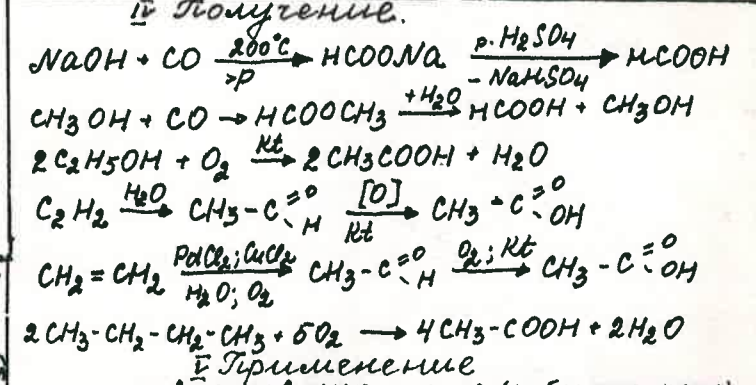 IV Получение.
NaOH + CO 200°C >p → HCOONa р. H2SO4 - NaHSO4 → HCOOH
CH3OH + CO → HCOOCH3 +H2O → HCOOH + CH3OH
2C2H5OH + O2 Kt → 2CH3COOH + H2O
C2H2 H2O → CH3-C=O H [O] Kt → CH3-C=O OH
CH2=CH2 PdCl2; CuCl2 H2O; O2 → CH3-C=O H O2; Kt → CH3-C=O OH
2CH3-CH2-CH2-CH3 + 5O2 → 4CH3-COOH + 2H2O
V Применение